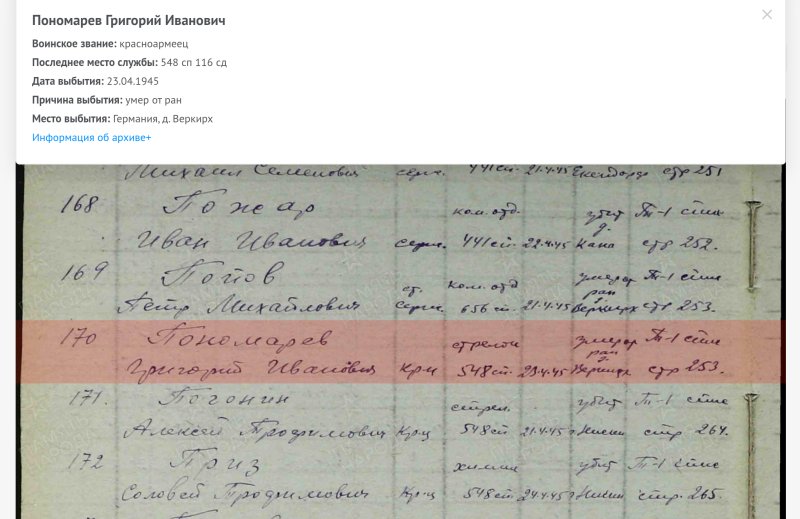 Пономарев Григорий Иванович
Воинское звание: красноармеец
Последнее место службы: 548 сп 116 сд
Дата выбытия: 23.04.1945
Причина выбытия: умер от ран
Место выбытия: Германия, д. Веркирх
Информация об архиве+
Михаил Семенович серж. 441 сп. 21.4.45 стр 251
168 Пожар ком. отд. убит Т-1 спис
д.
Иван Иванович серж. 441 сп. 22.4.45 Кана стр 252.
169 Попов ст. ком. отд умер от Т-1 спис
ран
Петр Михайлович серж. 656 сп. 21.4.45 Веркирх стр 253.
170 Пономарев стрелок умер от Т-1 спис
ран
Григорий Иванович Крц 548 сп. 23.4.45 стр 253.
171. Погонин стрел. убит Т-1 спис
Алексей Трофимович Крц 548 сп 21.4.45 стр 264.
172 Приз химик убит Т-1 спис
Соловей Трофимович Крц 548 сп. 24.4.45 стр. 265.